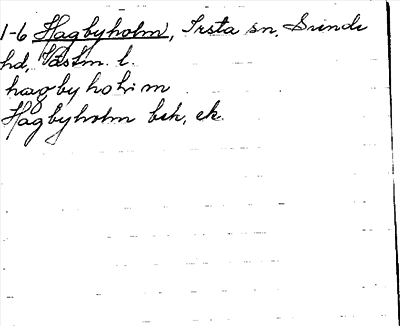 1-6 Hagbyholm, Irsta sn, Siende
hd, Västm. l.
hagbyholm
Hagbyholm bsk, ek.